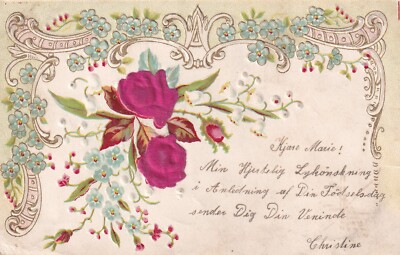 Kjære Marie!
Min Hjertelig Lykønskning
i Anledning af Din Fødselsdag
sender Dig Din Veninde
Christine